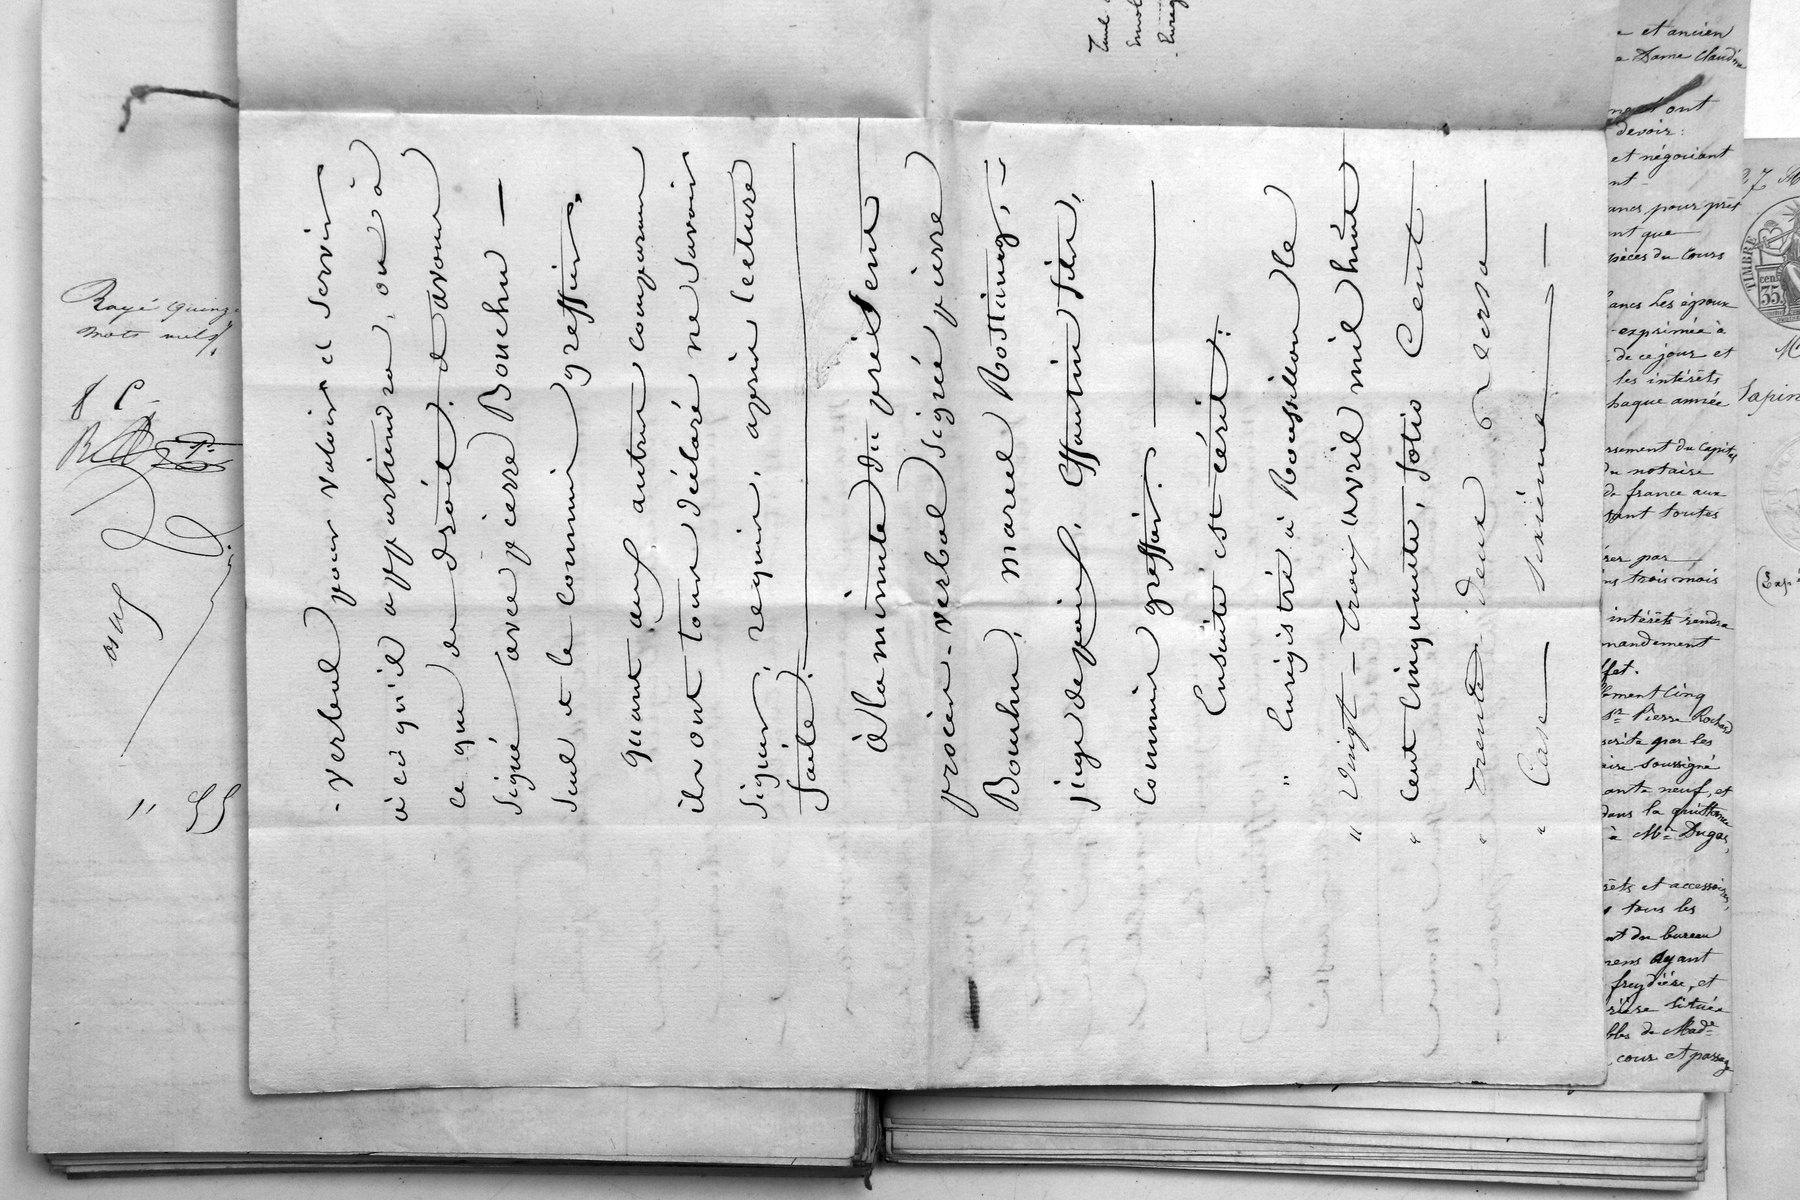 - verbal pour valoir et servir
à ce qu'il appartiendra, ou à
ce que de droit, et avons
signé avec pierre Bouchu —
seul et le commis greffier.
quant aux autres comparans
ils ont tous déclaré ne savoir
signer, requis, après lecture
faite.
à la minute du présent
procès-verbal signé pierre
Bouchu, marcel Rostaing,
juge de paix, Effantin fils,
commis greffier.
Ensuite est écrit :
" Enregistré à Roussillon le
" vingt-trois avril mil huit
" cent cinquante, folio cent
" trente-deux verso
" Case — sixième —
Rayé quinze
mots nuls
e et ancien
Dame Claudine
ont
devoir :
et négociant
nt
ancs pour prêt
nt que
pièces du Cours
ancs Les époux
exprimée à
de ce jour et
les intérêts
haque année
ssement du Capital
du notaire
de france aux
tant toutes
rer par
ns trois mois
intérêts rendra
mandement
ffet.
ment Cinq
Sr Pierre Rochas
scrite par les
aire soussigné
ante neuf, et
dans la quittance
à Me Dugas,
rêts et accessoires,
tous les
nt du bureau
rens Ayant
freydière, et
rière située
bles de Made
cour et passage
TIMBRE
35